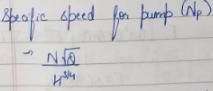 Specific speed for pump (Np)
→ N√Q
H^3/4